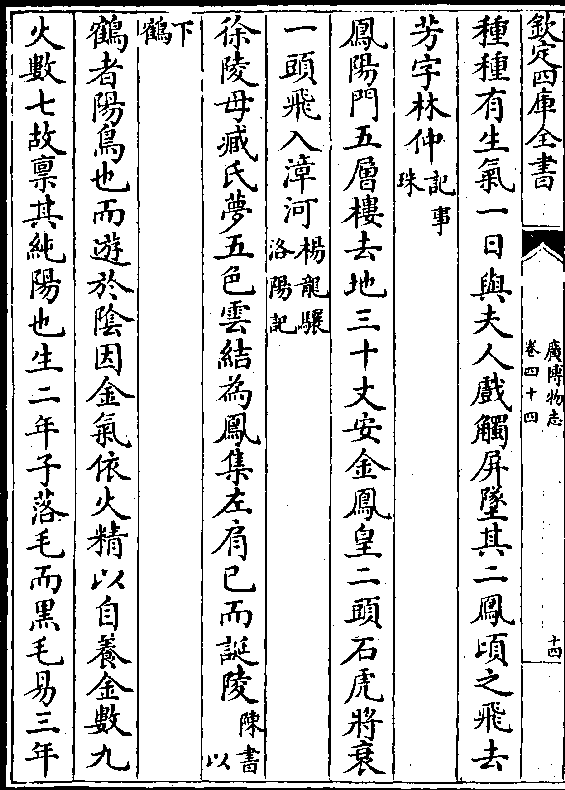 欽定四庫全書
廣博物志
卷四十四
十四
種種有生氣一日與夫人戲觸屏墜其二鳳頃之飛去
芳字林仲記事珠
鳳陽門五層樓去地三十丈安金鳳皇二頭石虎將衰
一頭飛入漳河楊龍驤洛陽記
徐陵母臧氏夢五色雲結為鳳集左肩已而誕陵陳書以
下鶴
鶴者陽鳥也而遊於陰因金氣依火精以自養金數九
火數七故禀其純陽也生二年子落毛而黒毛易三年